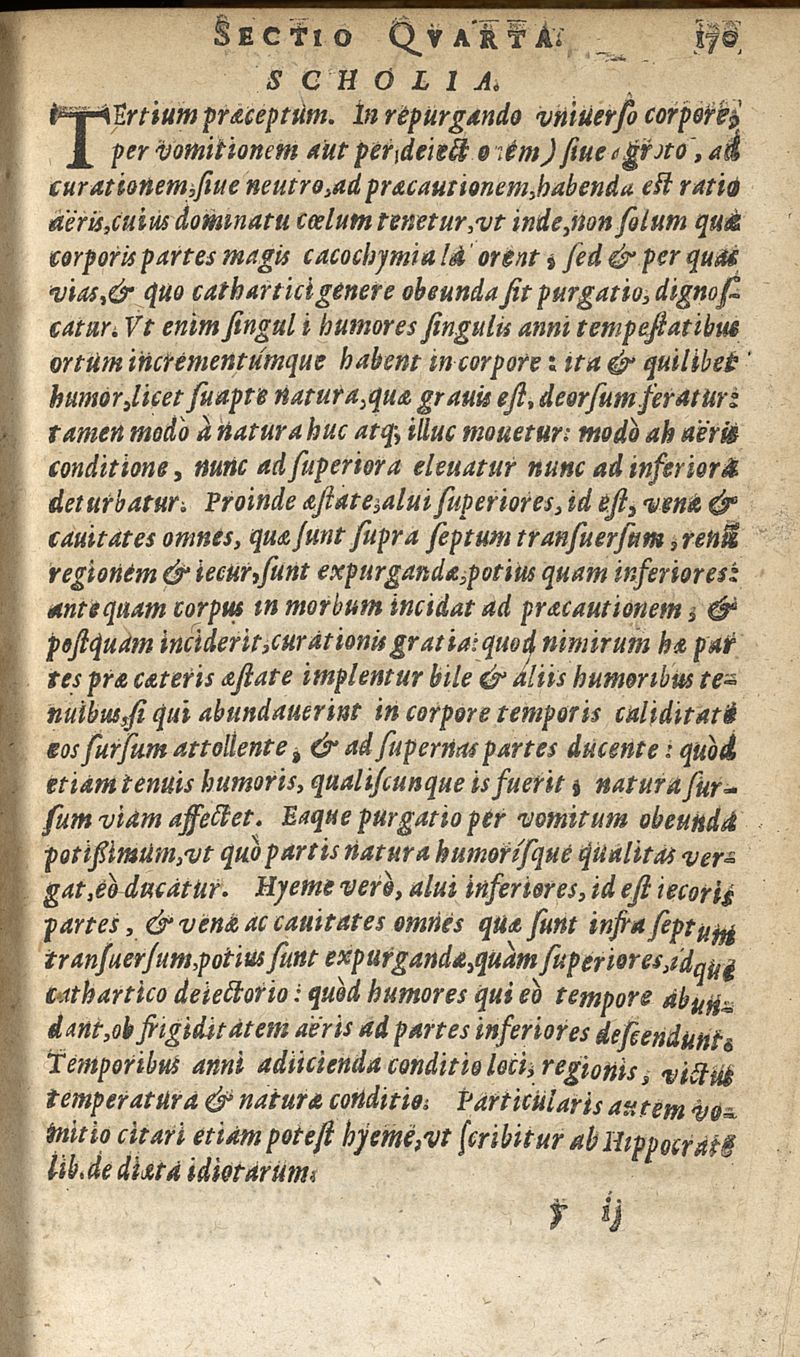 SECTIO QVARTA. 170
SCHOLIA.
TErtium præceptum. In repurgando vniuerso corpore,
per vomitionem aut per deiect o em) siue ægroto, ad
curationem, siue neutro, ad præcautionem, habenda est ratio
aëris, cuius dominatu cœlum tenetur, vt inde, non solum quæ
corporis partes magis cacochymia la orent, sed & per quas
vias, & quo cathartici genere obeunda sit purgatio, dignos-
catur. Vt enim singuli humores singulis anni tempestatibus
ortum incrementúmque habent in corpore: ita & quilibet
humor, licet suapte natura, quæ grauis est, deorsum feratur:
tamen modò à natura huc atq; illuc mouetur: modò ab aëris
conditione, nunc ad superiora eleuatur nunc ad inferiora
deturbatur. Proinde æstate, alui superiores, id est, venæ &
cauitates omnes, quæ sunt supra septum transuersum, renū
regionem & iecur, sunt expurgandæ, potius quam inferiores:
antequam corpus in morbum incidat ad præcautionem, &
postquam inciderit, curationis gratia: quod nimirum hæ par
tes præ cæteris æstate implentur bile & aliis humoribus te-
nuibus, si qui abundauerint in corpore temporis caliditate
eos sursum attollente, & ad supernas partes ducente: quòd
etiam tenuis humoris, qualiscunque is fuerit, natura sur-
sum viam affectet. Eaque purgatio per vomitum obeunda
potißimùm, vt quò partis natura humorísque qualitas ver-
gat, eò ducatur. Hyeme verò, alui inferiores, id est iecoris
partes, & venæ ac cauitates omnes quæ sunt infra septum
transuersum, potius sunt expurgandæ, quàm superiores, idque
cathartico deiectorio: quòd humores qui eò tempore abun-
dant, ob frigiditatem aëris ad partes inferiores descendunt.
Temporibus anni adiicienda conditio loci, regionis, victus
temperatura & naturæ conditio. Particularis autem vo-
mitio citari etiam potest hyeme, vt scribitur ab Hippocrate
lib. de diæta idiotarum.
y ij